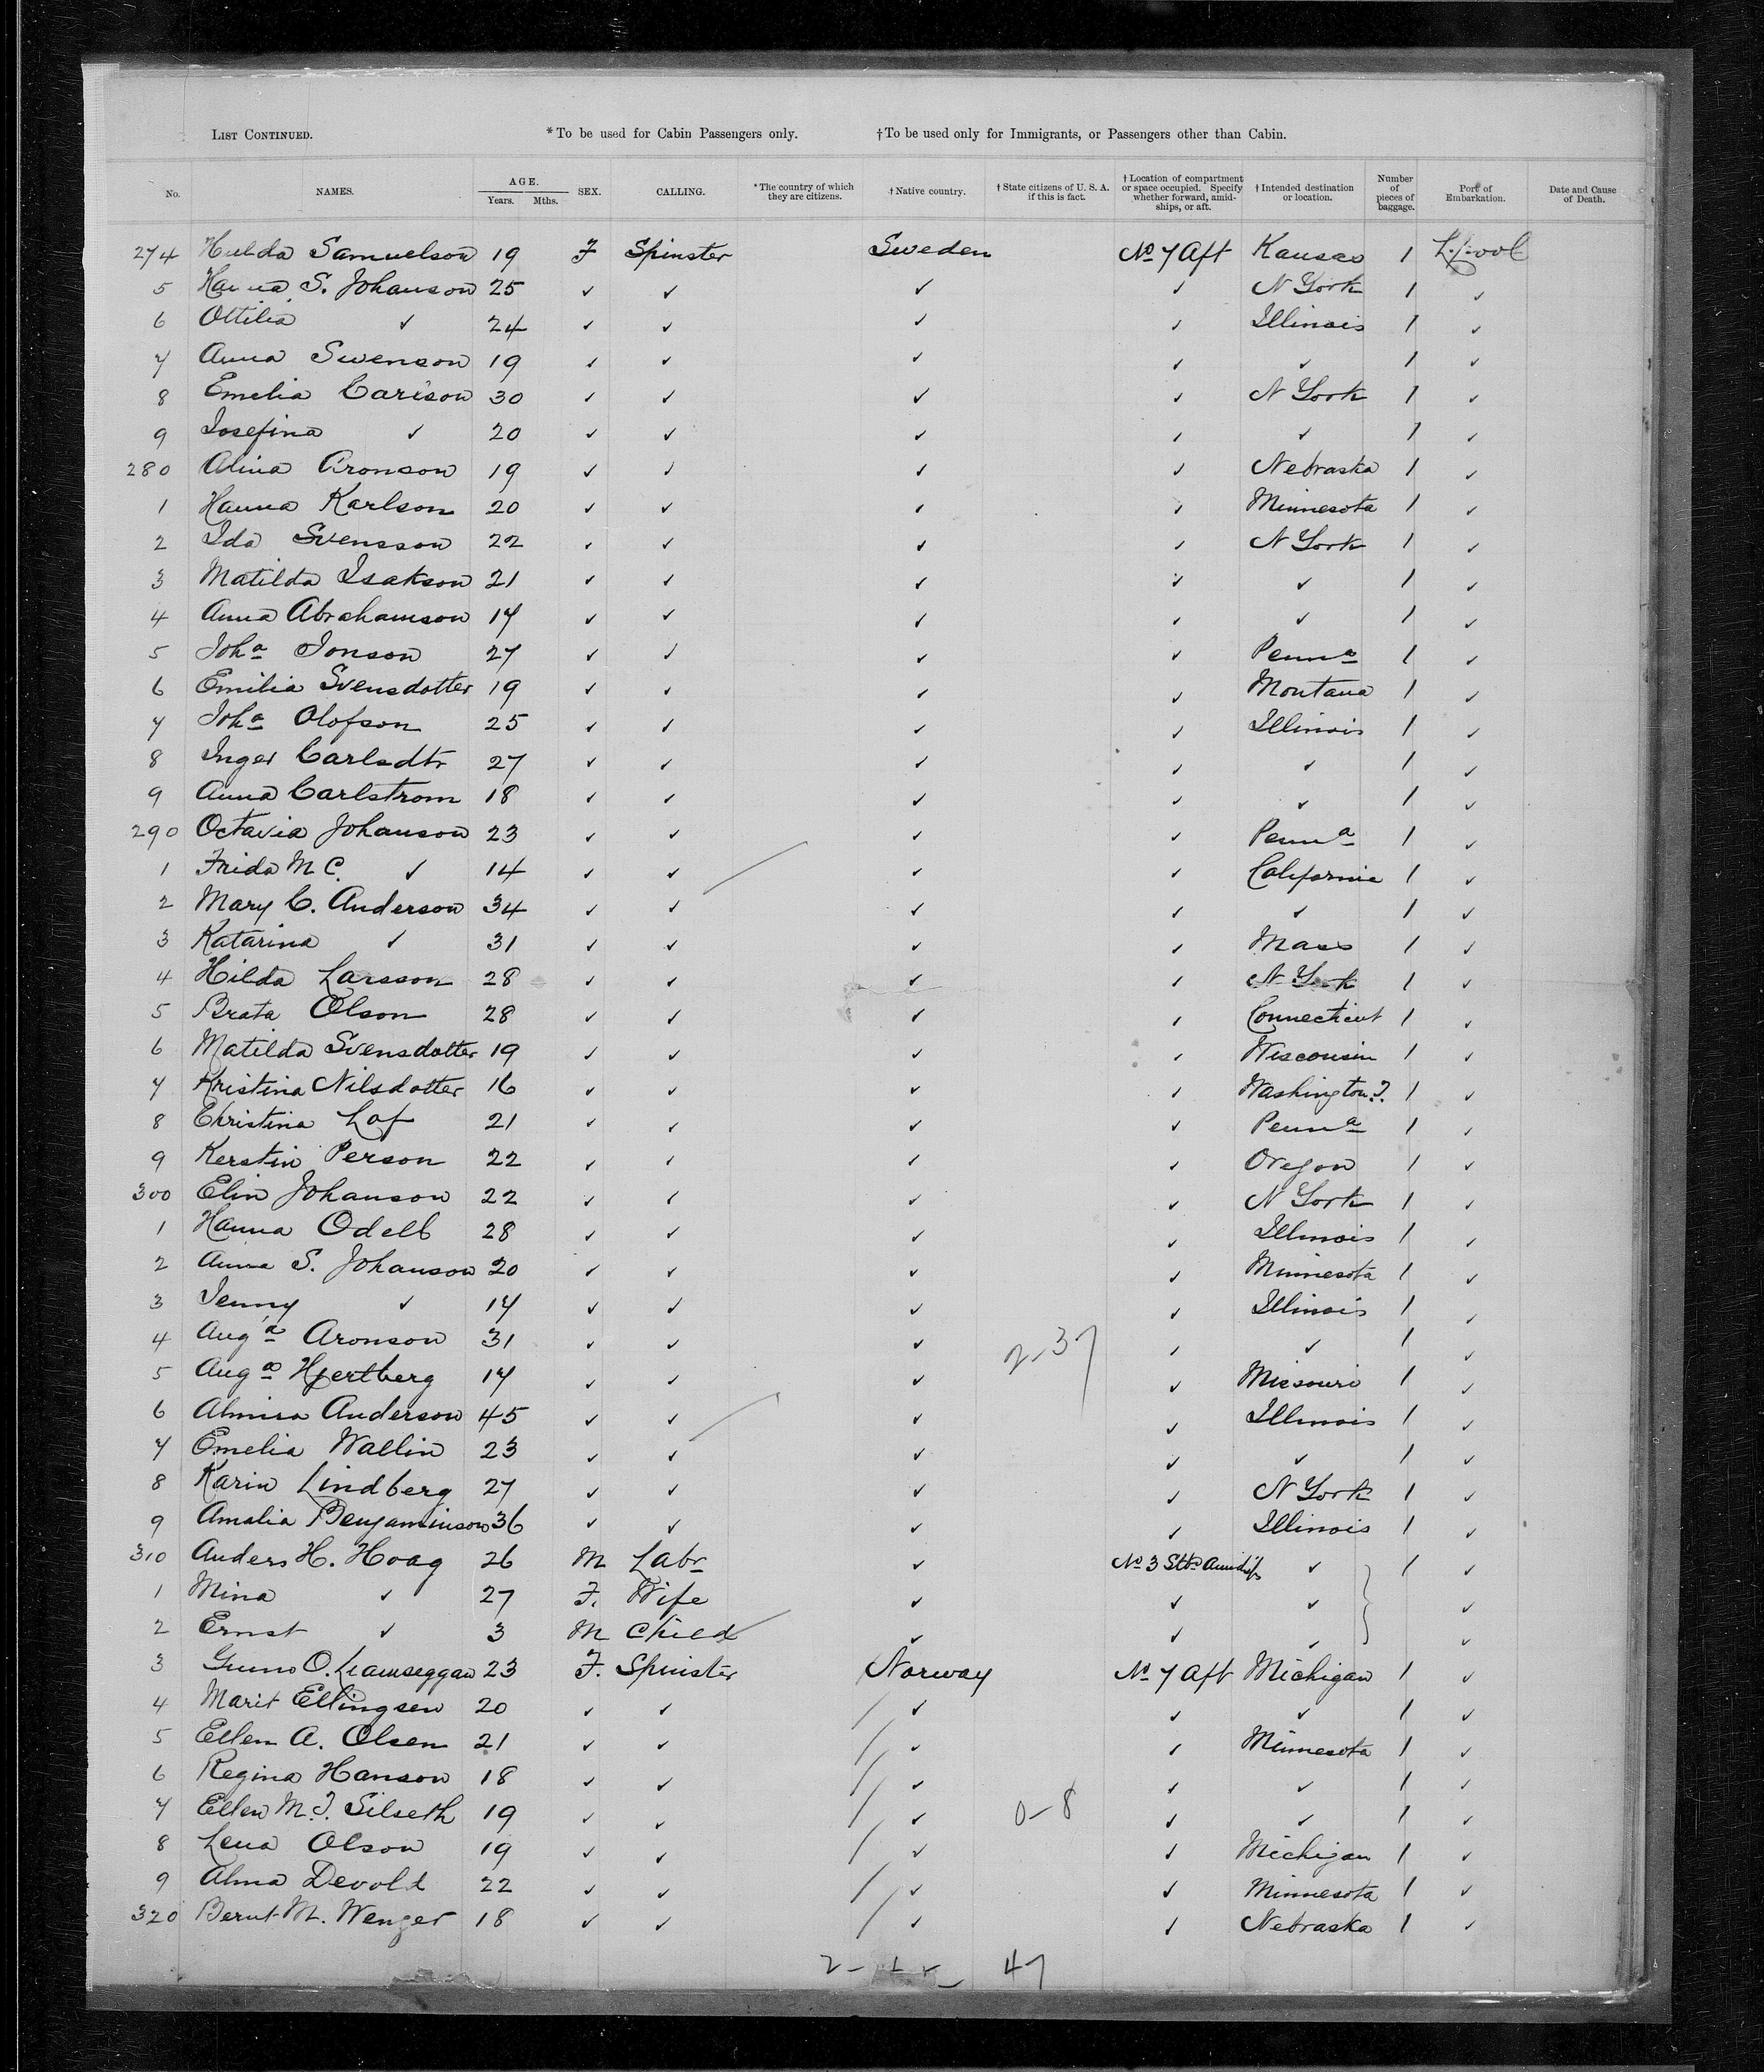 LIST CONTINUED. *To be used for Cabin Passengers only. †To be used only for Immigrants, or Passengers other than Cabin.
No. NAMES. AGE. Years. Mths. SEX. CALLING. *The country of which they are citizens. †Native country. †State citizens of U. S. A. if this is fact. †Location of compartment or space occupied. Specify whether forward, amidships, or aft. †Intended destination or location. Number of pieces of baggage. Port of Embarkation. Date and Cause of Death.
274 Hulda Samuelson 19 F Spinster Sweden No 7 Aft Kansas 1 L.pool
5 Hanna S. Johanson 25 ✓ ✓ ✓ ✓ N York 1 ✓
6 Ottilia ✓ 24 ✓ ✓ ✓ ✓ Illinois 1 ✓
7 Anna Swenson 19 ✓ ✓ ✓ ✓ ✓ 1 ✓
8 Emelia Carlson 30 ✓ ✓ ✓ ✓ N York 1 ✓
9 Josefina ✓ 20 ✓ ✓ ✓ ✓ ✓ 1 ✓
280 Alina Aronson 19 ✓ ✓ ✓ ✓ Nebraska 1 ✓
1 Hanna Karlson 20 ✓ ✓ ✓ ✓ Minnesota 1 ✓
2 Ida Svensson 22 ✓ ✓ ✓ ✓ N York 1 ✓
3 Matilda Isakson 21 ✓ ✓ ✓ ✓ ✓ 1 ✓
4 Anna Abrahamson 17 ✓ ✓ ✓ ✓ ✓ 1 ✓
5 Joha Jonson 27 ✓ ✓ ✓ ✓ Penna 1 ✓
6 Emilia Svensdotter 19 ✓ ✓ ✓ ✓ Montana 1 ✓
7 Joha Olofson 25 ✓ ✓ ✓ ✓ Illinois 1 ✓
8 Inger Carlsdtr 27 ✓ ✓ ✓ ✓ ✓ 1 ✓
9 Anna Carlstrom 18 ✓ ✓ ✓ ✓ ✓ 1 ✓
290 Octavia Johanson 23 ✓ ✓ ✓ ✓ Penna 1 ✓
1 Frida M C. ✓ 14 ✓ ✓ ✓ ✓ California 1 ✓
2 Mary C. Anderson 34 ✓ ✓ ✓ ✓ ✓ 1 ✓
3 Katarina ✓ 31 ✓ ✓ ✓ ✓ Mass 1 ✓
4 Hilda Larsson 28 ✓ ✓ ✓ ✓ N York 1 ✓
5 Brata Olson 28 ✓ ✓ ✓ ✓ Connecticut 1 ✓
6 Matilda Svensdotter 19 ✓ ✓ ✓ ✓ Wisconsin 1 ✓
7 Kristina Nilsdotter 16 ✓ ✓ ✓ ✓ Washington.T. 1 ✓
8 Christina Lof 21 ✓ ✓ ✓ ✓ Penna 1 ✓
9 Kerstin Person 22 ✓ ✓ ✓ ✓ Oregon 1 ✓
300 Elin Johanson 22 ✓ ✓ ✓ ✓ N York 1 ✓
1 Hanna Odell 28 ✓ ✓ ✓ ✓ Illinois 1 ✓
2 Anna S. Johanson 20 ✓ ✓ ✓ ✓ Minnesota 1 ✓
3 Jenny ✓ 17 ✓ ✓ ✓ ✓ Illinois 1 ✓
4 Auga Aronson 31 ✓ ✓ ✓ 2-37 ✓ ✓ 1 ✓
5 Auga Hjertberg 17 ✓ ✓ ✓ ✓ Missouri 1 ✓
6 Anderson 45 ✓ ✓ ✓ ✓ Illinois 1 ✓
7 Emelia Wallin 23 ✓ ✓ ✓ ✓ ✓ 1 ✓
8 Karin Lindberg 27 ✓ ✓ ✓ ✓ N York 1 ✓
9 Amalia Benjaminson 36 ✓ ✓ ✓ ✓ Illinois 1 ✓
310 Anders H. Hoag 26 M Labr ✓ No 3 ✓ 1 ✓
1 Mina ✓ 27 F. Wife ✓ ✓ ✓ ✓
2 Ernst ✓ 3 M Child ✓ ✓ ✓ ✓
3 O. 23 F. Spinster Norway No 7 Aft Michigan 1 ✓
4 Marit Ellingsen 20 ✓ ✓ ✓ ✓ ✓ 1 ✓
5 Ellen A. Olsen 21 ✓ ✓ ✓ ✓ Minnesota 1 ✓
6 Regina Hanson 18 ✓ ✓ ✓ ✓ ✓ 1 ✓
7 Ellen M. T. Silseth 19 ✓ ✓ ✓ 0-8 ✓ ✓ 1 ✓
8 Lena Olson 19 ✓ ✓ ✓ ✓ Michigan 1 ✓
9 Alma Devold 22 ✓ ✓ ✓ ✓ Minnesota 1 ✓
320 Berut M. Wenger 18 ✓ ✓ ✓ ✓ Nebraska 1 ✓
47